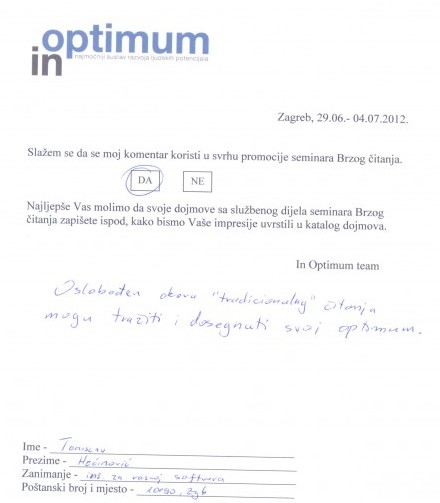 optimum
najmoćniji sustav razvoja ljudskih potencijala
in
Zagreb, 29.06.- 04.07.2012.
Slažem se da se moj komentar koristi u svrhu promocije seminara Brzog čitanja.
DA NE
Najljepše Vas molimo da svoje dojmove sa službenog dijela seminara Brzog
čitanja zapišete ispod, kako bismo Vaše impresije uvrstili u katalog dojmova.
In Optimum team
Oslobođen okova "tradicionalnog" čitanja
mogu tražiti i dosegnuti svoj optimum.
Ime - Tomislav
Prezime -
Zanimanje - ing. za razvoj softvera
Poštanski broj i mjesto - 10090, Zgb